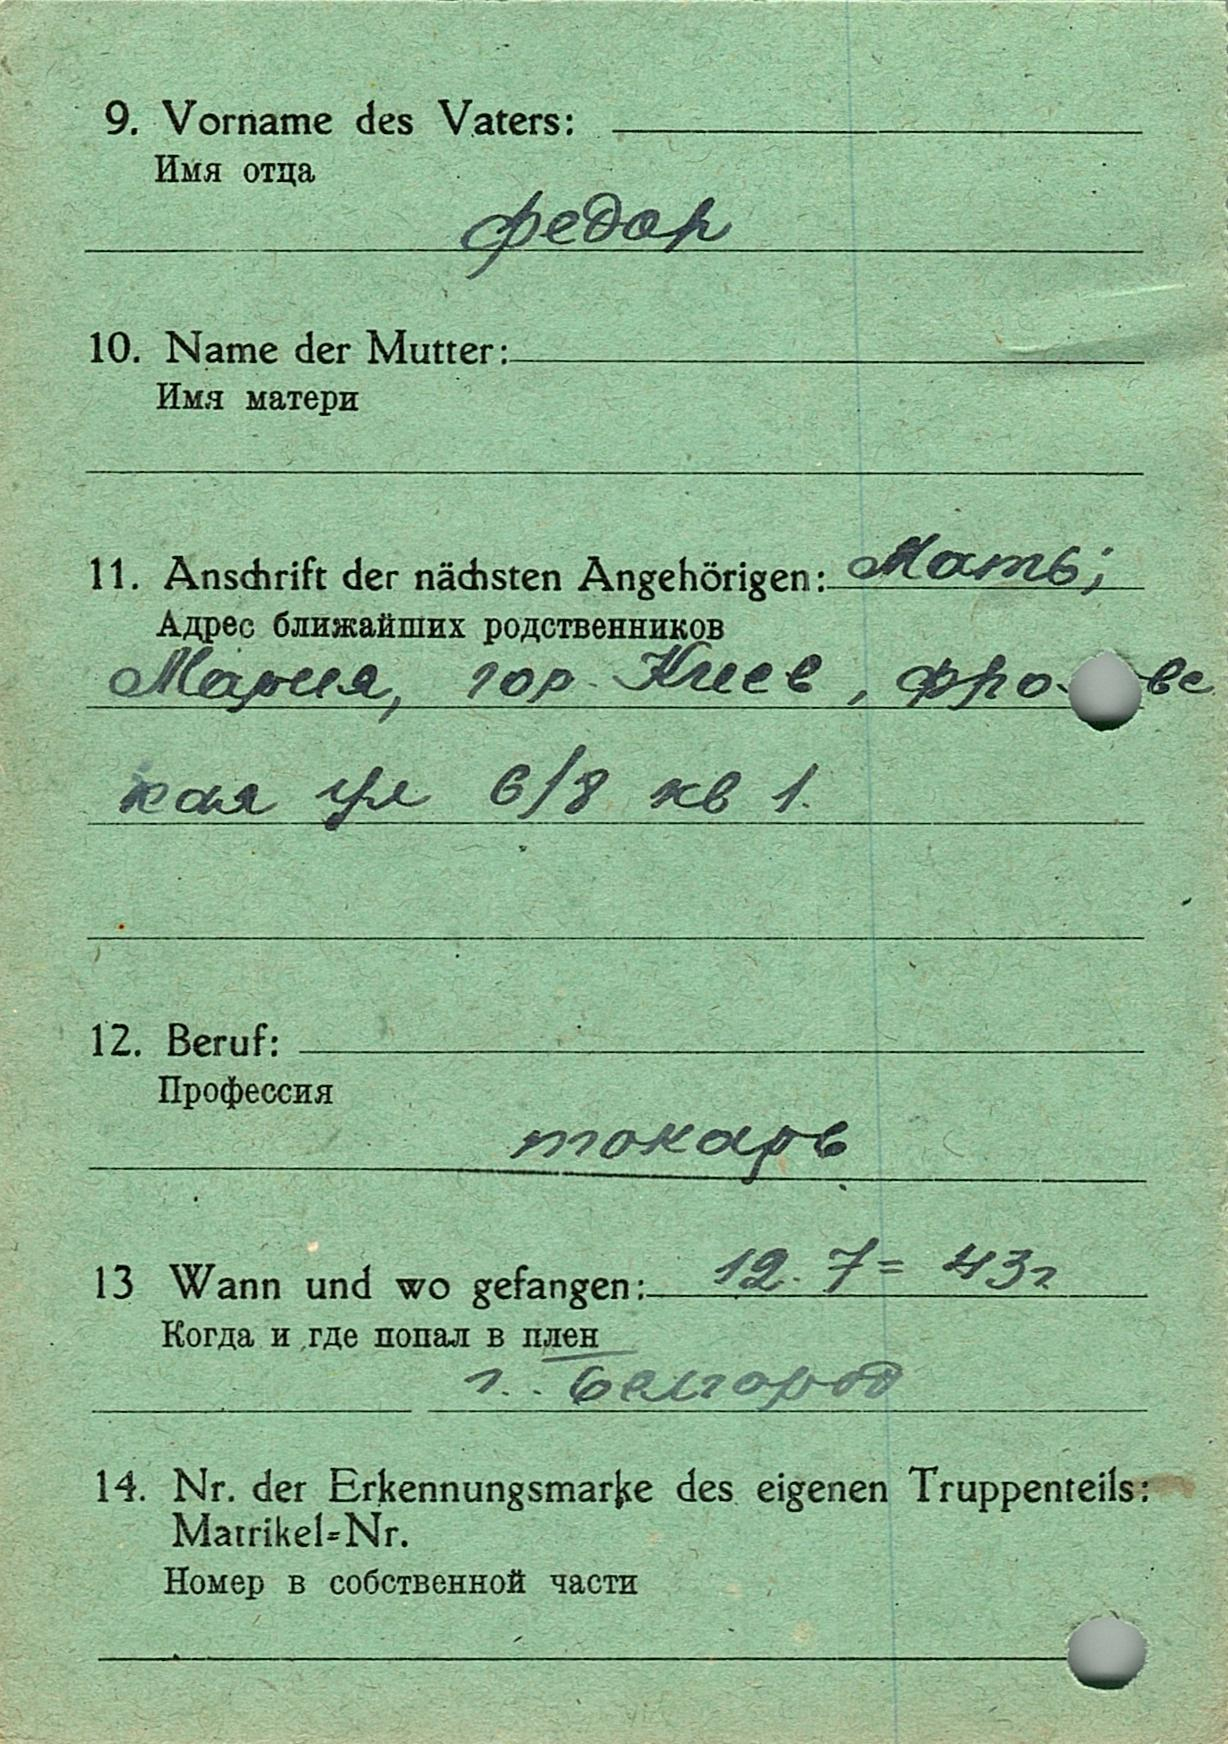 9. Vorname des Vaters:
Имя отца
федор
10. Name der Mutter:
Имя матери
11. Anschrift der nächsten Angehörigen: Мать;
Адрес ближайших родственников
Мария, гор. Киев,
кая ул 6/8 кв 1.
12. Beruf:
Профессия
токарь
13 Wann und wo gefangen: 12. 7= 43г
Когда и где попал в плен
г. Белгород
14. Nr. der Erkennungsmarke des eigenen Truppenteils:
Matrikel=Nr.
Номер в собственной части